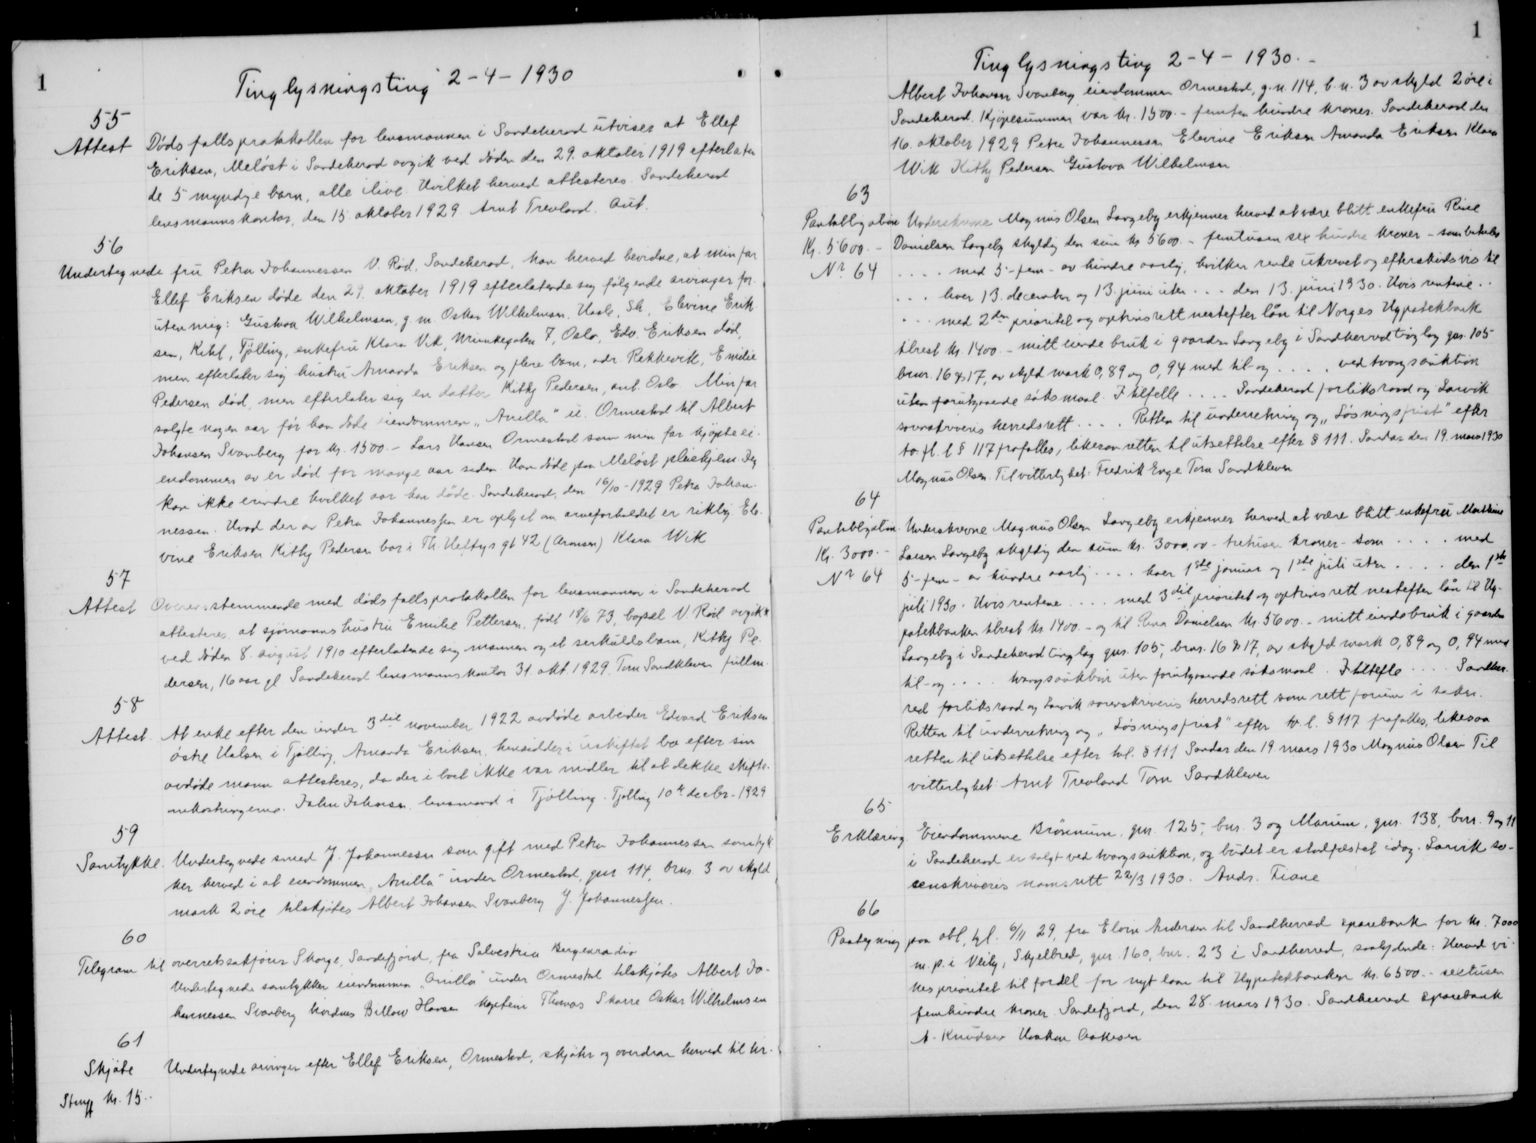 1
Tinglysningsting 2-4-1930
55
Attest Dødsfallsprotokollen for lensmannen i Sandeherad utviser at Ellef
Eriksen, Meløst i Sandeherad avgik ved døden den 29. oktober 1919 efterlaten
de 5 myndye barn, alle ilive. Hvilket herved attesteres. Sandeherad
lensmannskontor, den 15 oktober 1929 Arnt Trevland. Aut.
56
Undertegnede fru Petra Johannessen V. Rød, Sandeherad, kan herved bevidne, at min far
Ellef Eriksen døde den 29. oktober 1919 efterlatende sig følgende arvinger for
uten mig: Gustava Wilhelmsen, g. m. Oskar Wilhelmsen, Hasle, Sk, Elevine Erik
sen, Tjølling, enkefru Klara Vik, 7, Oslo, Edv. Eriksen død,
men efterlater sig hustru Amanda Eriksen og flere barn, adr Rekkevik, Emilie
Pedersen død, men efterlater sig en datter Kithy Pedersen, ant. Oslo Min far
solgte nogen aar før han døde eiendommen „Anilla" u. Ormestad til Albert
Johansen Svanberg for kr. 1500.- Lars Hansen Ormestad som min far kjøpte ei-
endommen av er død for mange aar siden. Han døde paa Meløst pleiehjem. Jeg
kan ikke erindre hvilket aar han døde. Sandeherad, den 16/10-1929 Petra Johan
nessen. Hvad der av Petra Johannessen er oplyst om arveforholdet er riktig Ele
vine Eriksen Kithy Pedersen bor i Th. Heftys gt 42 (Aronsen) Klara Wik
57
Attest Overensstemmende med dødsfallsprotokollen for lensmannen i Sandeherad
attesteres, at sjømannshustru Emilie Pettersen, født 18/6 73, bopæl V. Rød avgik
ved døden 8. august 1910 efterlatende sig mannen og et særkuldsbarn, Kithy Pe
dersen, 16 aar gl. Sandeherad lensmannskontor 31 okt. 1929. Tom Sandkleven fullm.
58
Attest At enke efter den under 3die november 1922 avdøde arbeider Edvard Eriksen
østre Halsen i Tjølling, Amanda Eriksen, hensidder i uskiftet bo efter sin
avdøde mann attesteres, da der i boet ikke var midler til at dekke skifte-
omkostningerne. John Johansen lensmand i Tjølling. Tjølling 10de decbr. 1929
59
Samtykke. Undertegnede smed J. Johannessen som gift med Petra Johannessen samtyk
ker herved i at eiendommen „Anilla" under Ormestad, gnr 114, bnr. 3 av skyld
mark 2 øre tilskjøtes Albert Johansen Svanberg J. Johannessen.
60
Telegram til overretssakfører Skorge, Sandefjord, fra Salvestria Bergenradio
Undertegnede samtykker eiendommen „Anilla" under Ormestad tilskjøtes Albert Jo-
hannessen Svanberg Billow Hansen kaptein Thomas Skarre Oskar Wilhelmsen
61
Skjøte Undertegnede arvinger efter Ellef Eriksen, Ormestad, skjøter og overdrar herved til hr.
Stmpl kr. 15.-
1
Tinglysningsting 2-4-1930.-
Albert Johansen Svanberg eiendommen Ormestad, g.n. 114, b.n. 3 av skyld 2 øre i
Sandeherad. Kjøpesummen var kr. 1500.- femten hundre kroner. Sandeherad den
16. oktober 1929 Petra Johannessen Elevine Eriksen Amanda Eriksen Klara
Wik Kithy Pedersen Gustava Wilhelmsen
63
Panteobligation Underskrevne Magnus Olsen Langeby erkjenner herved at være blitt enkefru Rine
Kr. 5600.- Danielsen Langeby skyldig den sum kr 5600.- femtusen sex hundre kroner - som betales
No 64 .... med 5 - fem - av hundre aarlig, hvilken rente utredet og efterskudsvis til
... hver 13. december og 13. juni uten ... den 13. juni 1930. Hvis rentene ..
... med 2den prioritet og optrinsrett nestefter lån til Norges Hypotekbank
tilrest kr. 1400.- mitt eiende bruk i gaarden Langeby i Sandherred tinglag gnr. 105
bnr. 16 & 17, av skyld mark 0,89 og 0,94 med til og .... ved tvangsauktion
uten forutgaaende søksmaal. I tilfelle .... Sandeherad forliksraad og Larvik
sorenskriveris herredsrett .... Retten til underretning og „Løsningsfrist" efter
to fl. l § 117 frafalles, likesom retten til utsettelse efter § 111. Sandar den 19. mars 1930
Magnus Olsen Til vitterlighet: Fredrik Enge Tom Sandkleven
64
Panteobligation Underskrevne Magnus Olsen Langeby erkjenner herved at være blitt enkefru Mathine
Kr. 3000.- Larsen Langeby skyldig den sum kr. 3000,00 - tretusen kroner - som .... med
No 64 5 - fem - av hundre aarlig .... hver 1ste januar og 1ste juli uten .... den 1ste
juli 1930. Hvis rentene .... med 3die prioritet og optrinsrett nestefter lån til Hy-
potekbanken tilrest kr 1400 - og til Rina Danielsen kr. 5600.- mitt eiendebruk i gaarden
Langeby i Sandeherad tinglag gnr. 105, bnr. 16 & 17, av skyld mark 0,89 og 0,94 med
til og .... tvangsauktion uten forutgaaende søksmaal. I tilfelle .... Sandher
red forliksraad og Larvik sorenskriveris herredsrett som rett forum i saken.
Retten til underretning og „Løsningsfrist" efter tv. l. § 117 frafalles, likesaa
retten til utsettelse efter tvl. § 111 Sandar den 19 mars 1930 Magnus Olsen Til
vitterlighet: Arnt Trevland Tom Sandkleven
65
Erklæring Eiendommene Brønnum, gnr. 125, bnr. 3 og Marum, gnr. 138, bnr. 9 og 11
i Sandeherad er solgt ved tvangsauktion, og budet er stadfæstet idag. Larvik so-
renskriveris namsrett 22/3 1930. Ands. Fiane
66
Paategning paa obl, tgl. 6/11 29, fra Elovn Andersen til Sandherred sparebank for kr. 7000
m. p. i Skjelbred, gnr. 160, bnr. 23 i Sandherred, saalydende: Herved vi-
kes prioritet til fordel for nyt laan til Hypotekbanken kr. 6500.- sextusen
femhundre kroner. Sandefjord, den 28 mars 1930. Sandherred sparebank
A. Knudsen Haakon